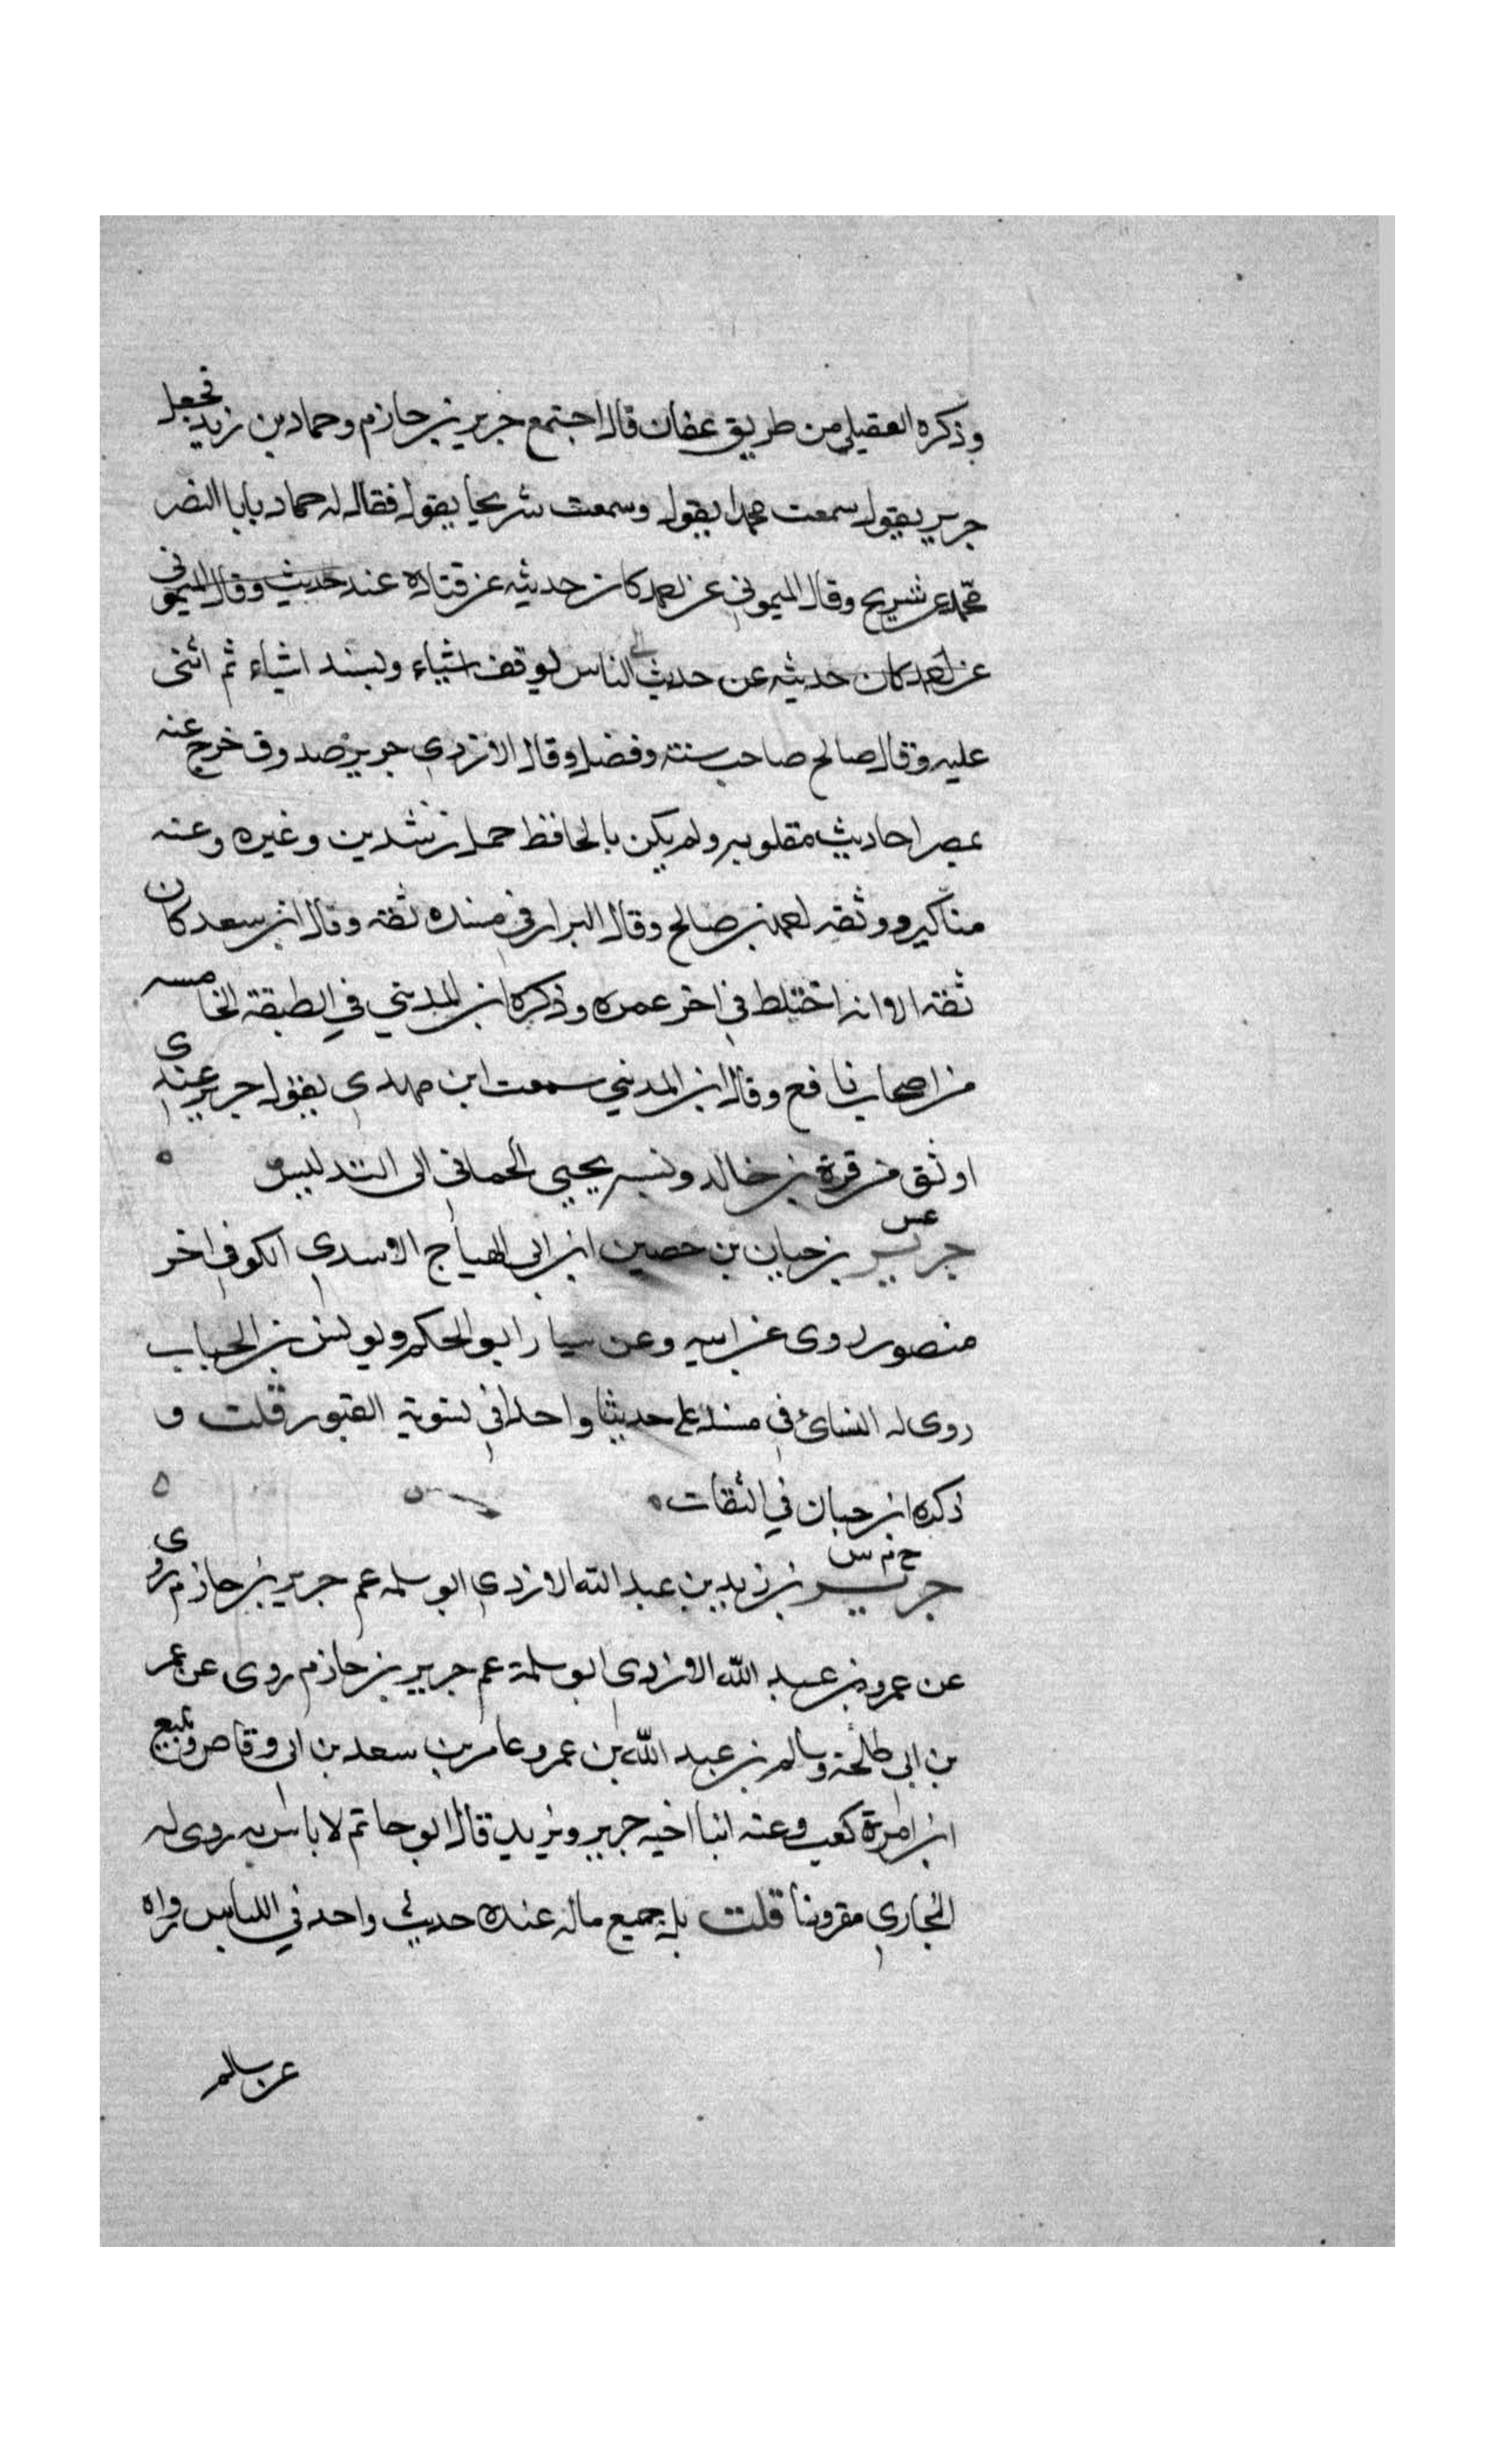 وذكره العقيلي من طريق عفان قال اجتمع جرير بن حازم وحماد بن زيد فجعل
جرير يقول سمعت محمدا يقول وسمعت شريحا يقول فقال له حماد يابا النضر
محمد عن شريح وقال الميموني عن احمد كان حديثه عن قتادة عند حديث وقال الميموني
عن احمد كان حديثه عن حديث الناس يوقف اشياء ويسند اشياء ثم اثنى
عليه وقال صالح صاحب سنة وفضل وقال الازدي جرير صدوق خرج عنه
بمصر احاديث مقلوبه ولم يكن بالحافظ حمل رشدين وغيره وعنه
مناكير ووثقه احمد بن صالح وقال البزار في مسنده ثقة وقال ابن سعد كان
ثقة الا انه اختلط في اخر عمره وذكره ابن المديني في الطبقة الخامسه
من اصحاب نافع وقال ابن المديني سمعت ابن مهدي يقول جرير عندي
اوثق من قرة بن خالد ونسبه يحيى الحماني الى التدليس ه
عس
جرير بن حيان بن حصين ابن ابي الهياج الاسدي الكوفي اخر
منصور روى عن ابيه وعن سيار ابو الحكم ويونس بن الحباب
روى له النسائي في مسند علي حديثا واحدا في تسوية القبور قلت و
ذكره ابن حبان في الثقات ه
خ م س
جرير بن زيد بن عبد الله الازدي ابو سلمه عم جرير بن حازم روى
عن عمرو بن عبد الله الازدي ابو سلمة عم جرير بن حازم روى عن عمر
بن ابي طلحة وسالم بن عبد الله بن عمر وعامر بن سعد بن ابي وقاص وتبيع
ابن امرة كعب وعنه ابنا اخيه جرير ويزيد قال ابو حاتم لا باس به روى له
البخاري مقرونا قلت بل جميع ماله عنده حديث واحد في اللباس رواه
عن سالم